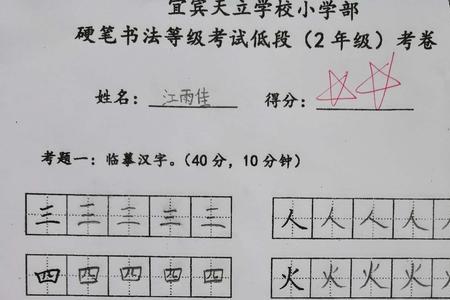 宜宾天立学校小学部
硬笔书法等级考试低段（2年级）考卷
姓名：江雨佳 得分：
考题一：临摹汉字。（40分，10分钟）
三 三 三 三 三 人 人 人 人 人
四 四 四 四 四 火 火 火 火 火